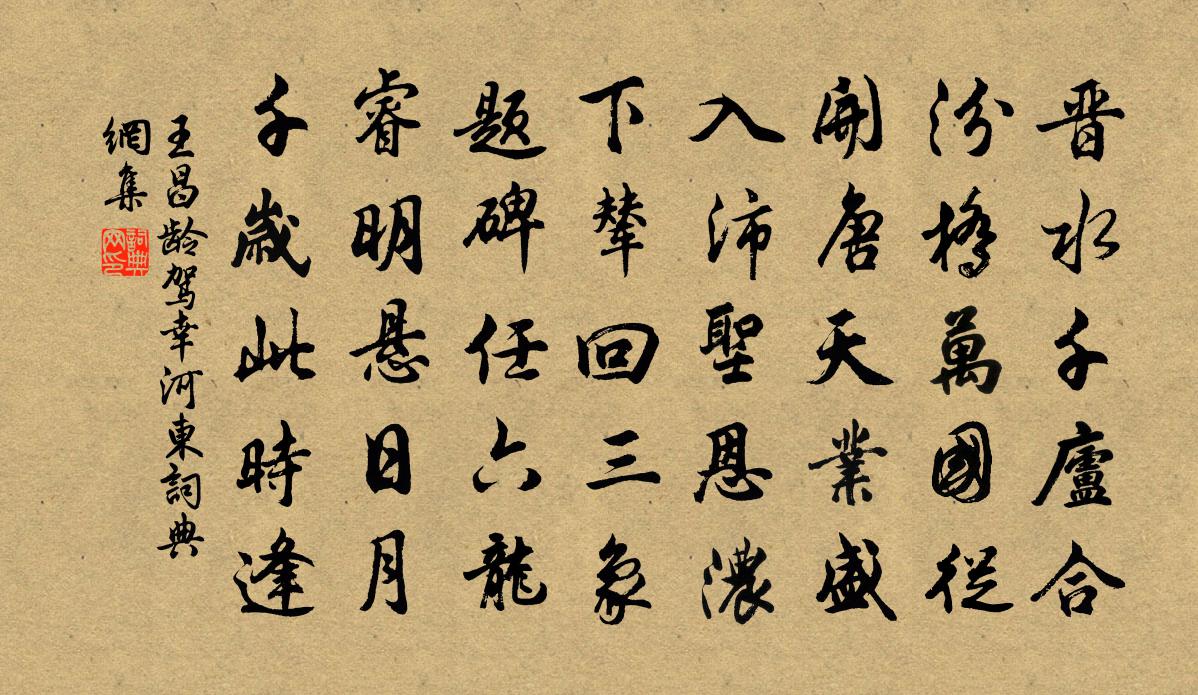 晋水千廬合
汾橋萬國從
開唐天業盛
入沛聖恩濃
下輦回三象
题碑任六龍
睿明悬日月
千歲此時逢
王昌龄驾幸河東詞典
網集
詞典网印